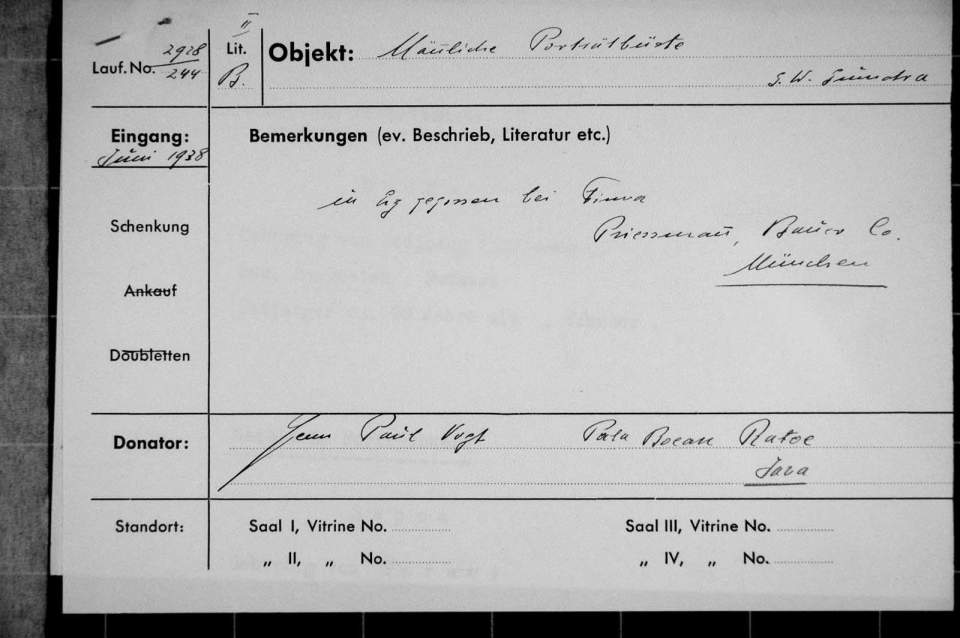 II
Lauf. No. 2928/244
Lit. B.
Objekt: Männliche Porträtbüste
S. W. Sumatra
Eingang:
Juni 1938
Bemerkungen (ev. Beschrieb, Literatur etc.)
in Erz gegossen bei Firma
Priessmann, Bauer Co.
München
Schenkung
Ankauf
Doubletten
Donator: Herrn Paul Vogt
Java
Standort:
Saal I, Vitrine No.
Saal III, Vitrine No.
„ II, „ No.
„ IV, „ No.